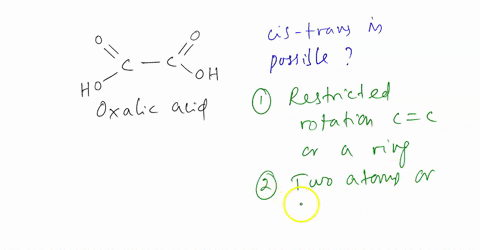 O
O
C — C
HO
OH
Oxalic acid
cis-trans is
possible ?
① Restricted
rotation C=C
or a ring
② Two atoms or